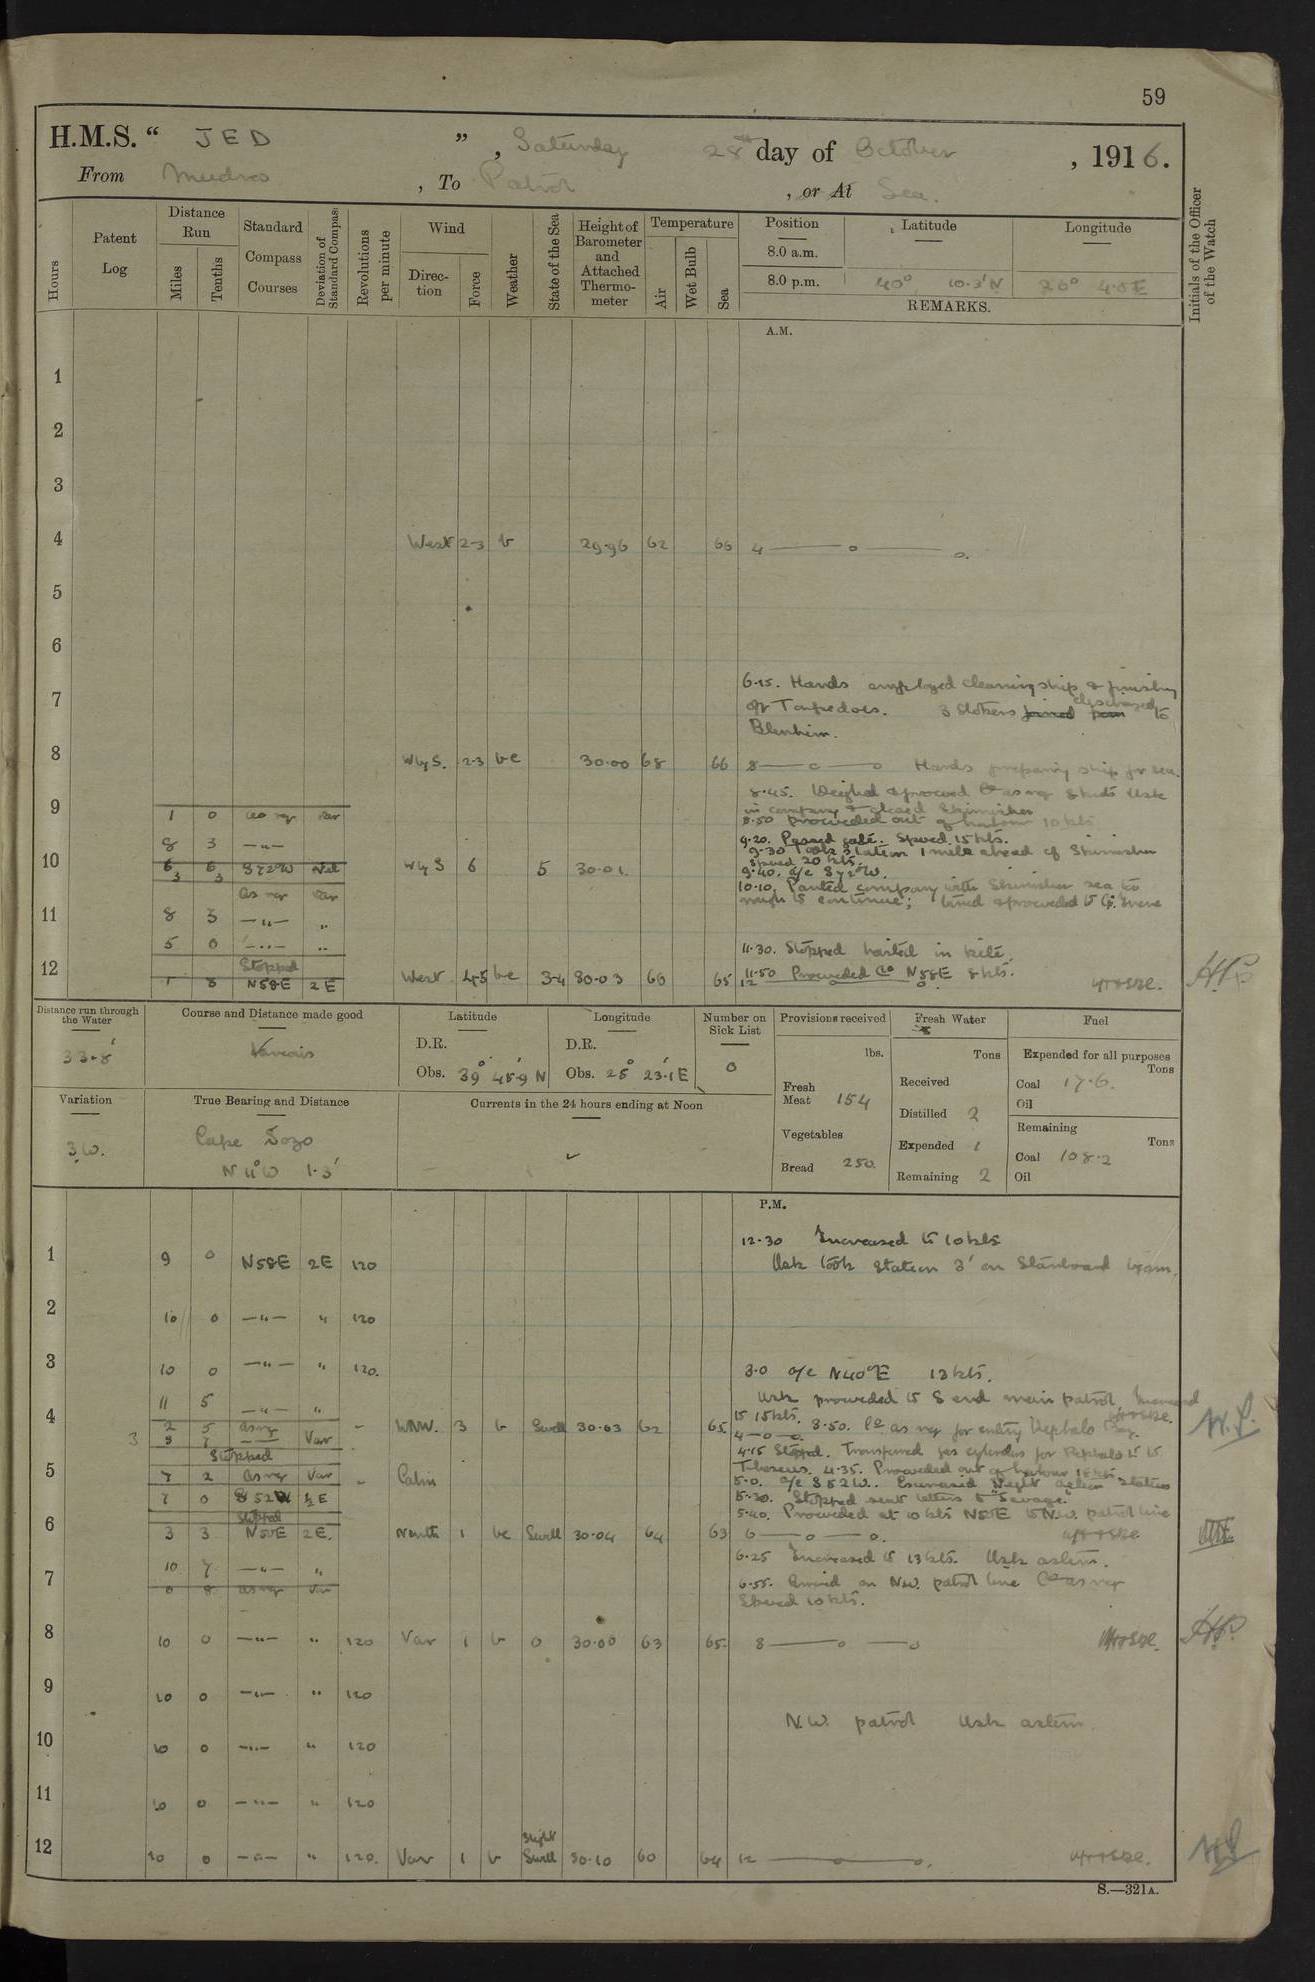 59
H.M.S. “ JED ” , Saturday 28th day of October , 1916.
From Mudros , To Patrol , or At Sea.
Hours
Patent Log
Distance Run
Miles
Tenths
Standard Compass Courses
Deviation of Standard Compass
Revolutions per minute
Wind
Direction
Force
Weather
State of the Sea
Height of Barometer and Attached Thermometer
Temperature
Air
Wet Bulb
Sea
Position
Latitude
Longitude
8.0 a.m.
8.0 p.m. 40° 10.3'N 26° 4.0 E
REMARKS.
Initials of the Officer of the Watch
A.M.
1
2
3
4 West 2-3 b 29.96 62 66 4 — o — o.
5
6
6.15. Hands employed cleaning ship & finishing
7
off Torpedoes. 3 Stokers joined from discharged to
Blenheim.
8 W by S. 2-3 bc 30.00 68 66 8 — o — o Hands preparing ship for sea.
8.45. Weighed & proceeded Co as req Usk
9 1 0 as req var
in company & cleared Skirmisher
8.50 proceeded out of harbour 10 kts.
8 3 —"—
9.20. Passed gate. Speed 15 kts.
9.30 Took station 1 mile ahead of Skirmisher
Speed 20 kts.
10 6 6 S72W Nil W by S 6 5 30.01.
9.40. a/c S72°W.
3 3 as req var
10.10. Parted company with Skirmisher sea too
rough to continue; turned & proceeded to
11 8 3 —"— "
5 0 —"— "
11.30. Stopped hailed in
Stopped
12 1 8 N58E 2E West 4-5 bc 3-4 30.03 66 65
11.50 Proceeded Co N58E 8 kts.
12 — o — o
Distance run through the Water
33.8'
Course and Distance made good
Various
Latitude
D.R.
Obs. 39° 45.9' N
Longitude
D.R.
Obs. 25° 23.1' E
Number on Sick List
0
Provisions received
lbs.
Fresh Meat 154
Vegetables
Bread 250
Fresh Water
Tons
Received
Distilled 2
Expended 1
Remaining 2
Fuel
Expended for all purposes
Tons
Coal 17.6.
Oil
Remaining
Tons
Coal 108.2
Oil
Variation
3 W.
True Bearing and Distance
Cape
N 11° W 1.3'
Currents in the 24 hours ending at Noon
P.M.
12.30 Increased to 10 kts
1 9 0 N58E 2E 120
Usk took station 3' on Starboard beam.
2 10 0 —"— " 120
3 10 0 —"— " 120.
3.0 a/c N40°E 13 kts.
11 5 —"— "
Usk proceeded to S end main patrol. Increased
to 15 kts. 3.50. Co as req for entry Kephalo Bay.
4 2 5 as req WNW. 3 b Swell 30.03 62 65 4 — o — o.
3 8 7 —"— Var
Stopped
4.15 Stopped. Transferred gas cylinders for Kephalo to
Theseus. 4.35. Proceeded out of harbour 15 kts.
5 7 2 as req Var Calm
5.0. a/c S52W. Exercised Night action stations
7 0 S52W ½E
5.30. Stopped sent letters to "Savage."
Stopped
5.40. Proceeded at 10 kts N50E to N.W. patrol line
6 3 3 N50E 2E. North 1 bc Swell 30.04 64 63 6 — o — o.
6.25 Increased to 13 kts. Usk astern.
10 7 —"— "
7 0 8 as req var
6.55. Arrived on N.W. patrol line Co as req
Speed 10 kts.
8 10 0 —"— " 120 Var 1 b 0 30.08 63 65. 8 — o — o
9 10 0 —"— " 120
N.W. patrol Usk astern.
10 10 0 —"— " 120
11 10 0 —"— " 120
12 10 0 —"— " 120. Var 1 b Slight Swell 30.10 60 64 12 — o — o.
S.—321A.